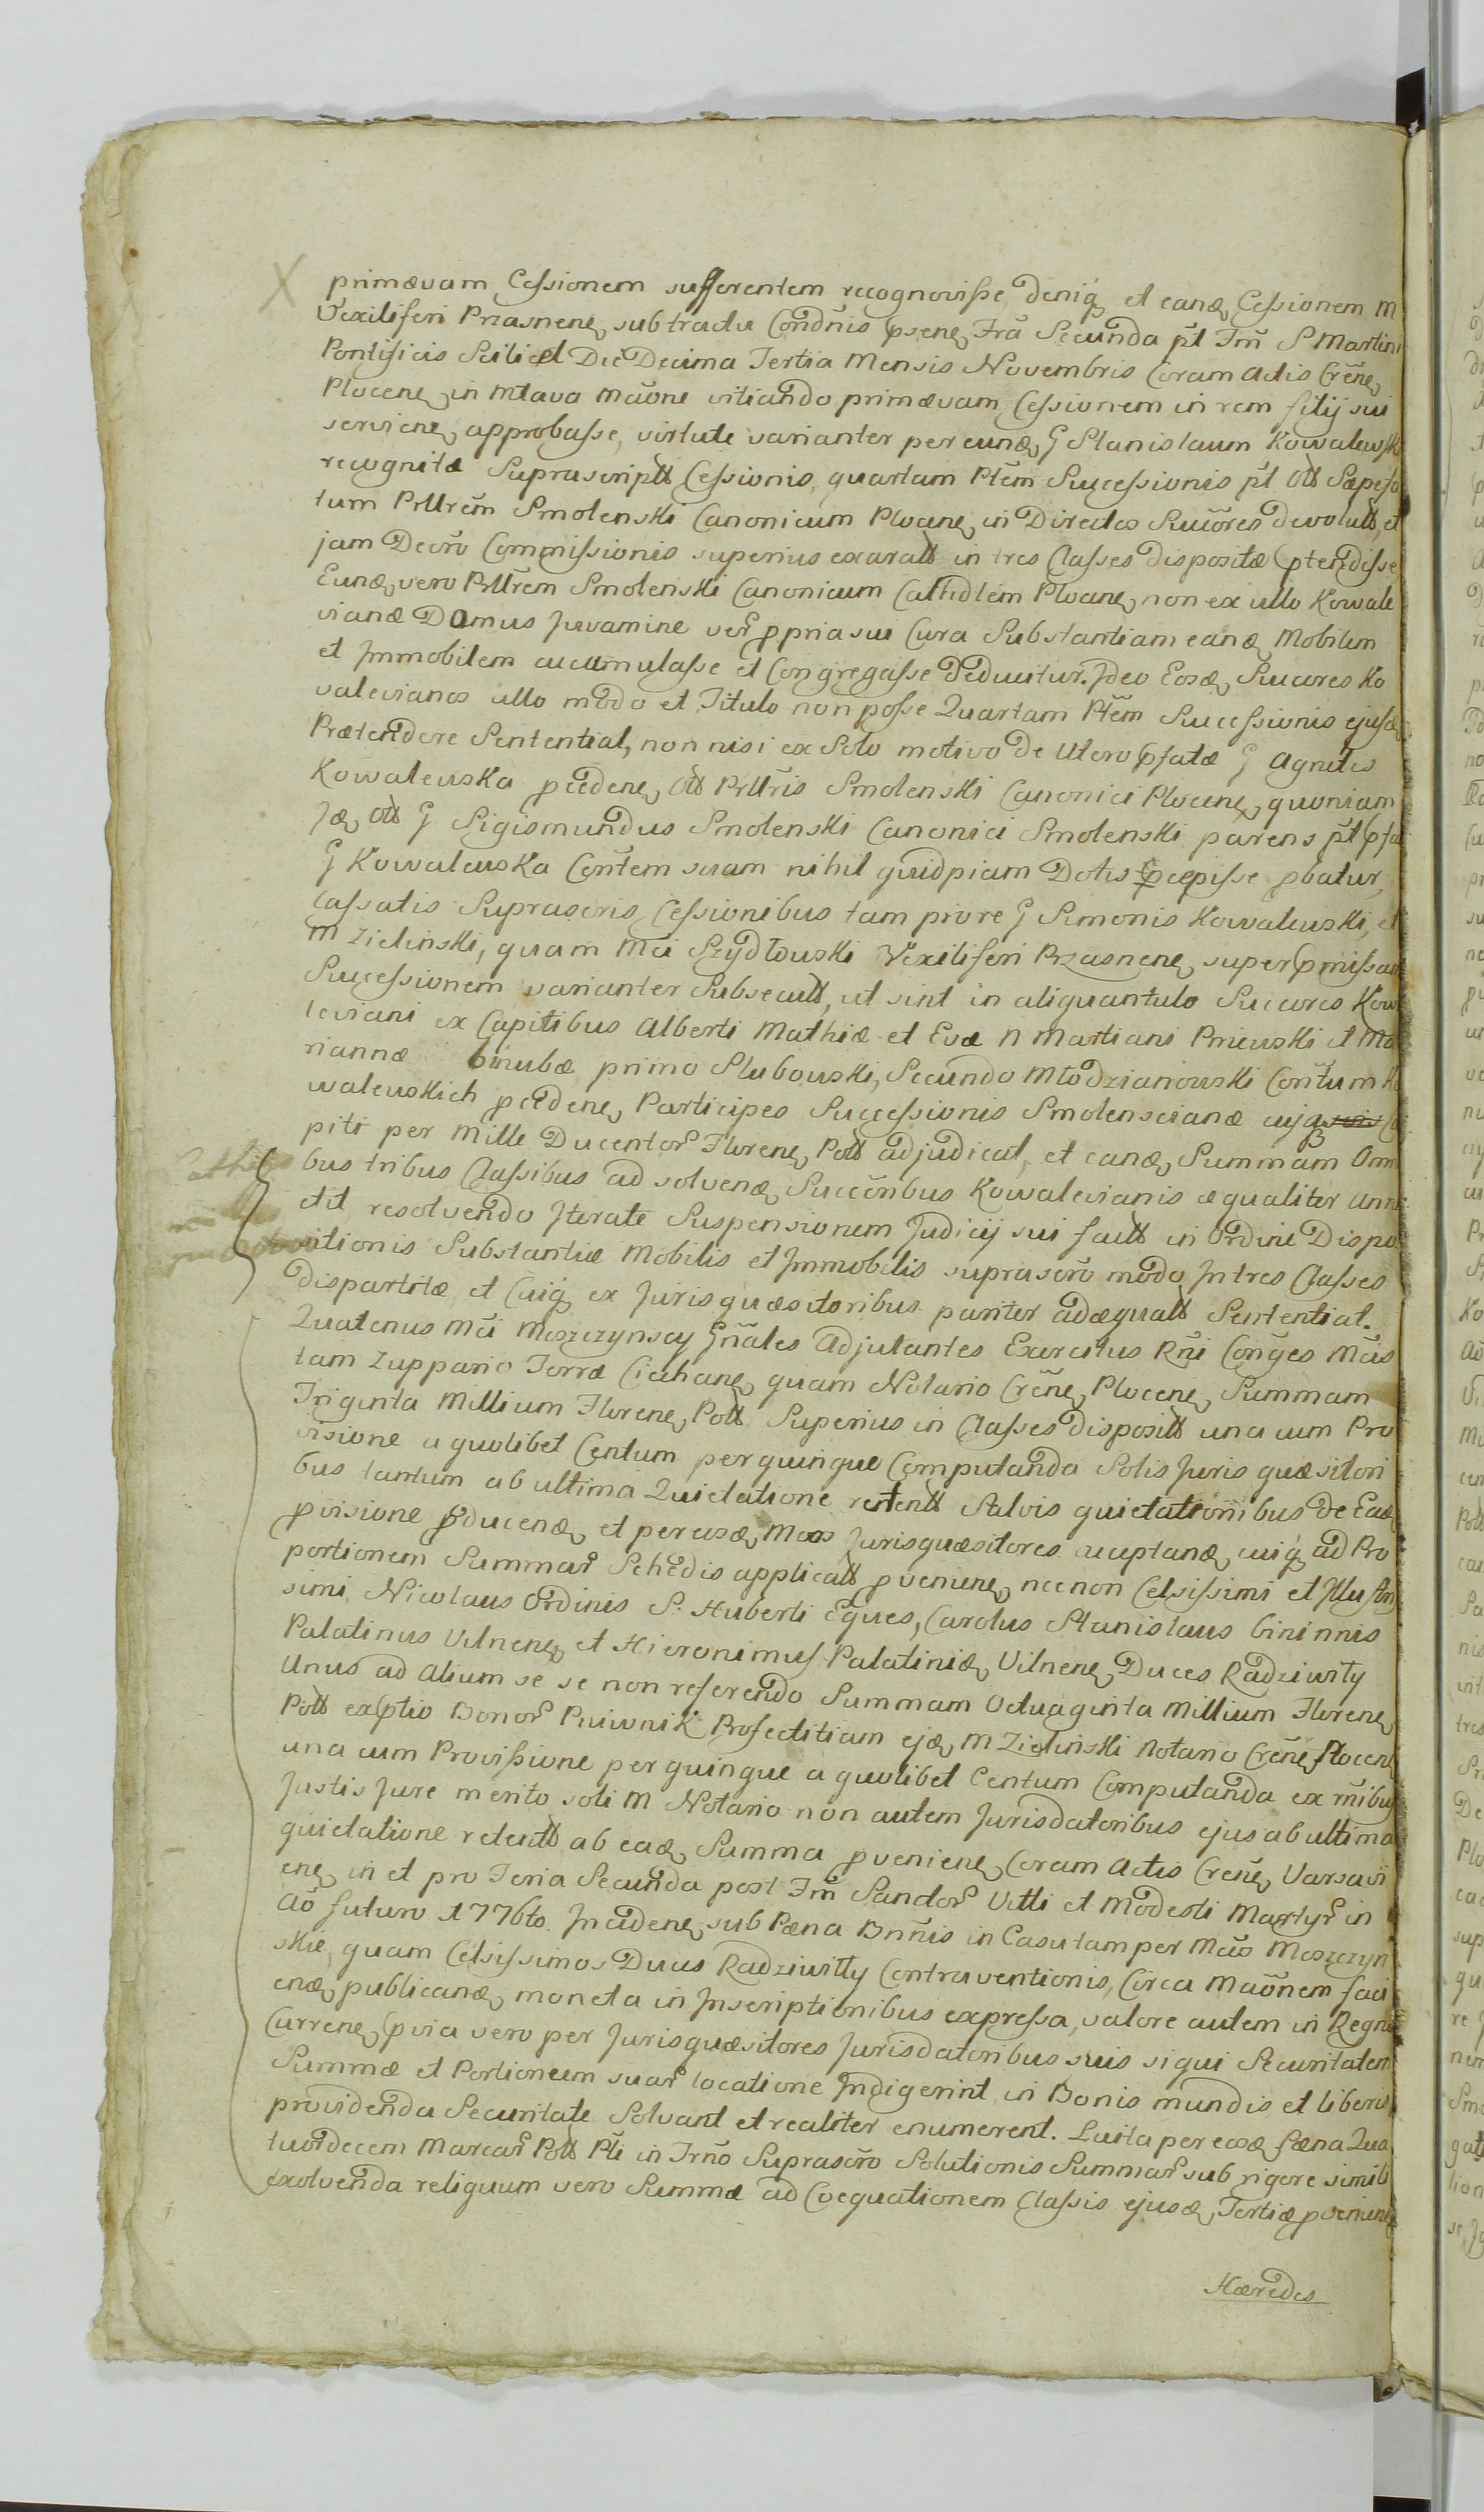 primævam Cessionem sufferentem recognovisse, deniq. et eand. Cessionem M
Vexiliferi Prasnenē, sub tractu Condnis psenē, Fra Secunda pt Fm S Martini
Pontificis Scilicet Die Decima Tertia Mensis Novembris Coram Actis Crēne,
Plocenē, in Mlava Maone vitiando primævam Cessionem in rem filij sui
servienē, approbasse, virtute varianter per eund, G Stanislaum Kowalewsk
recognitæ Suprascriptt Cessionis, quartam Ptem Successionis pt Ott Sæpefa
tum Prttrem Smolenski Canonicum Plocenē, in Directos Succores devolutt, et
jam Decro Commissionis superius exaratt in tres Classes dispositæ ptendisse
Eund, vero Prttrem Smolenski Canonicum Cattidlem Plocenē, non ex ullo Kowale
vianæ Domus Juvamine ver ppria sui Cura Substantiam eand, Mobilem
et Immobilem accumulasse et Congregasse deducitur. Ideo Eosd, Succores Ko
valevianos ullo modo et Titulo non posse Quartam Ptem Successionis ejusd,
Prætendere Sententiat, non nisi ex Solo motivo de Utero pfatæ G Agnetis
Kowalewska pcedenē, Ott Prttris Smolenski Canonici Plocenē, quoniam
Id, Ott G Sigismundus Smolenski Canonici Smolenski parens pt pfa
G Kowalewska Contem suam nihil quidpiam Dotis pcepisse pbatur,
Cassatis Suprascris Cessionibus tam priore G Simonis Kowalewski, et
M Zielinski, quam Mci Szydłowski Vexiliferi Przasnenē, super pmissam
Successionem varianter Subsecutt, ut sint in aliquantulo Succores Kow
leviani ex Capitibus Alberti Mathiæ et Evæ N Martiani Pniewski et Ma
riannæ binubæ primo Slubowski, Secundo Młodzianowski Contum K
walewskich pcedenē, Participes Successionis Smolenscianæ cujq
piti per Mille Ducentor Florenē, Pott adjudicat, et eand, Summam Omni
bus tribus Classibus ad solvend, Succoribus Kowalevianis æqualiter Ann
ctit resolvendo Iterate Suspensionem Judicij sui factt in Ordine Dispo
sitionis Substantiæ Mobilis et Immobilis suprascro modo in tres Classes
dispartitæ, et Cuiq ex Jurisquæsitoribus pariter adæquatt Sententiat.
Quatenus Mci Moszczynscy Gnales Adjutantes Exercitus Rni Conges Mcis
tam Zuppario Terræ Ciechanē, quam Notario Crēne, Plocenē, Summam
Triginta Millium Florenē, Pott Superius in Classes dispositt una cum Pro
visione a quolibet Centum per quinque Computanda Solis Juris quæsitori
bus tantum ab ultima Quietatione retentt Salvis quietationibus de Ead,
pvisione pducend, et per eosd, Mcos Jurisquæsitores acceptand, cuiq ad Pro
portionem Summar Schedis applicatt pvenienē, necnon Celsissimi et Illustris
simi, Nicolaus Ordinis S. Huberti Eques, Carolus Stanislaus binimnis
Palatinus Vilnenē, et Hieronimus Palatinid, Vilnenē, Duces Radziwiły
Unus ad Alium se se non referendo Summam Octuaginta Millium Florenē,
Pott ex ptio Bonor Pniwnik Profectitiam ejd, M Zielinski Notario Crēne Plocenē
una cum Provissione per quinque a quolibet Centum Computanda ex rnibus
Justis Jure merito soli M Notario non autem Jurisdatoribus ejus ab ultima
quietatione retentt ab ead, Summa pvenienē, Coram Actis Crēne, Varsavi
enē, in et pro Feria Secunda post Fm Sanctor Vitti et Modesti Martyr in
Ao futuro 1776to. Incidenē, sub Pæna Bnnis in Casu tam per Mcos Moszczyn
skie, quam Celsissimos Duces Radziwiłły Contraventionis, Circa Maonem faci
end, publicand, moneta in Inscriptionibus expressa, valore autem in Regno
Currenē, pvia vero per Jurisquæsitores Jurisdatoribus suis si qui Securitatem
Summæ et Portioneum suar locatione Indigerint, in Bonis mundis et liberis
providenda Securitate Solvant et realiter enumerent. Luita per eosd Pæna Qua
tuordecem Marcar Pott Pti in Trno Suprascro Solutionis Summar sub rigore simili
exolvenda reliquum vero Summæ ad Coequationem Classis ejusd, Tertiæ pvenienē
Hæredes